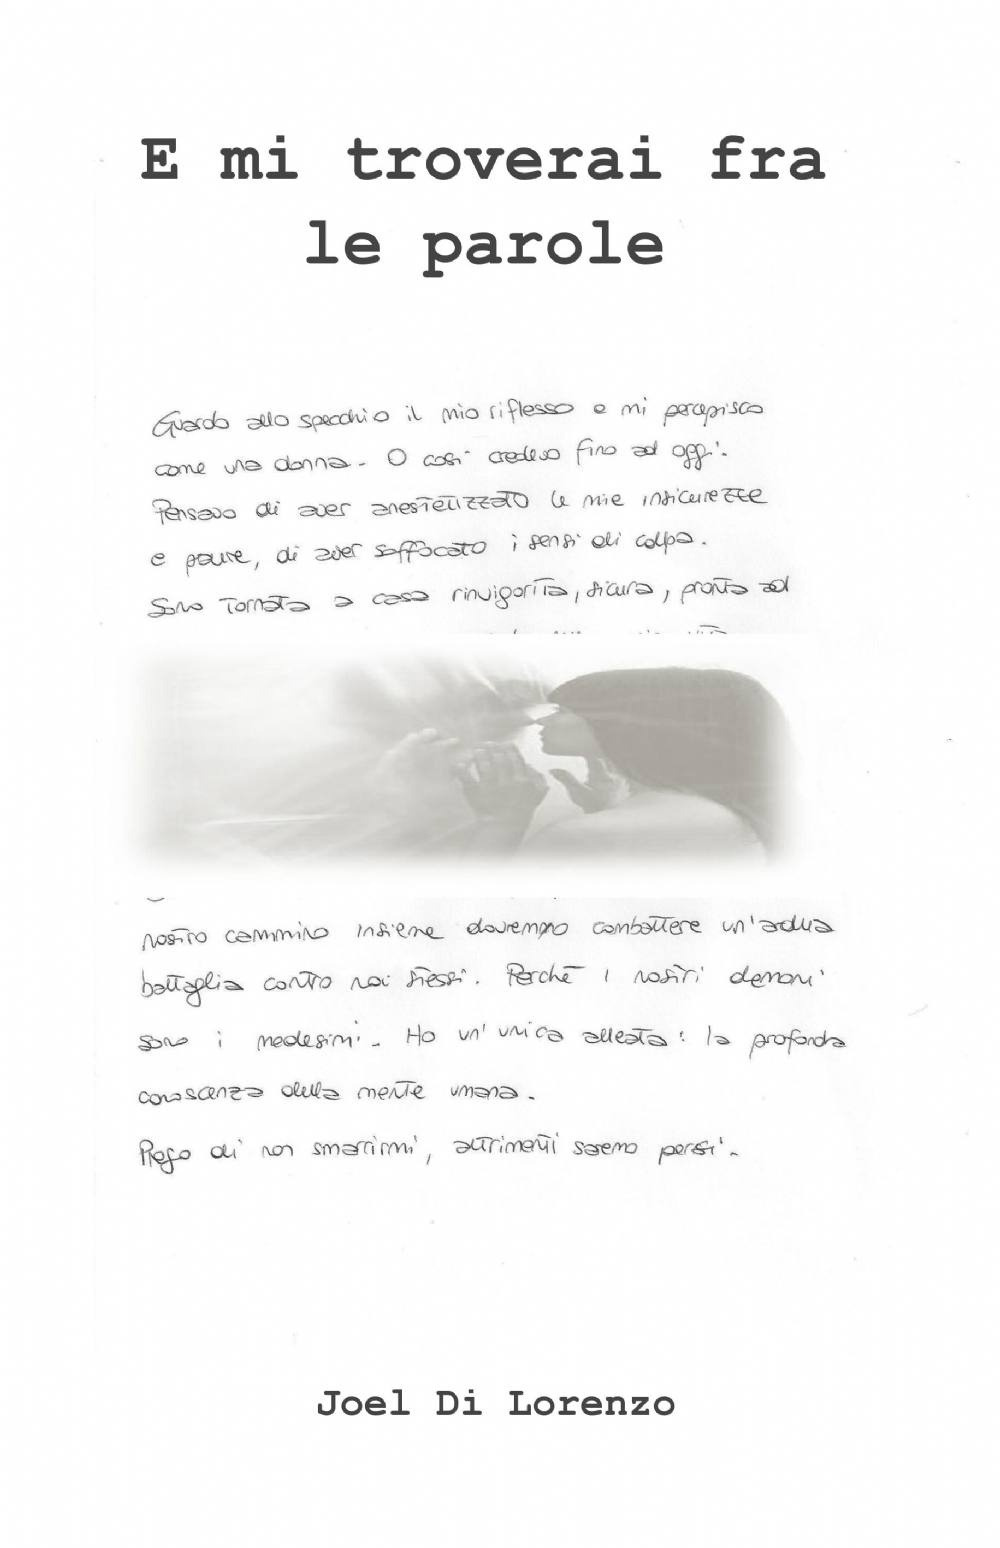 E mi troverai fra
le parole
Guardo allo specchio il mio riflesso e mi percepisco
come una donna. O così credevo fino ad oggi.
Pensavo di aver anestetizzato le mie insicurezze
e paure, di aver soffocato i sensi di colpa.
Sono tornata a casa rinvigorita, sicura, pronta ad
nostro cammino insieme dovremmo combattere un'ardua
battaglia contro noi stessi. Perchè i nostri demoni
sono i medesimi. Ho un'unica alleata: la profonda
conoscenza della mente umana.
Prego di non smarrirmi, altrimenti saremo persi.
Joel Di Lorenzo